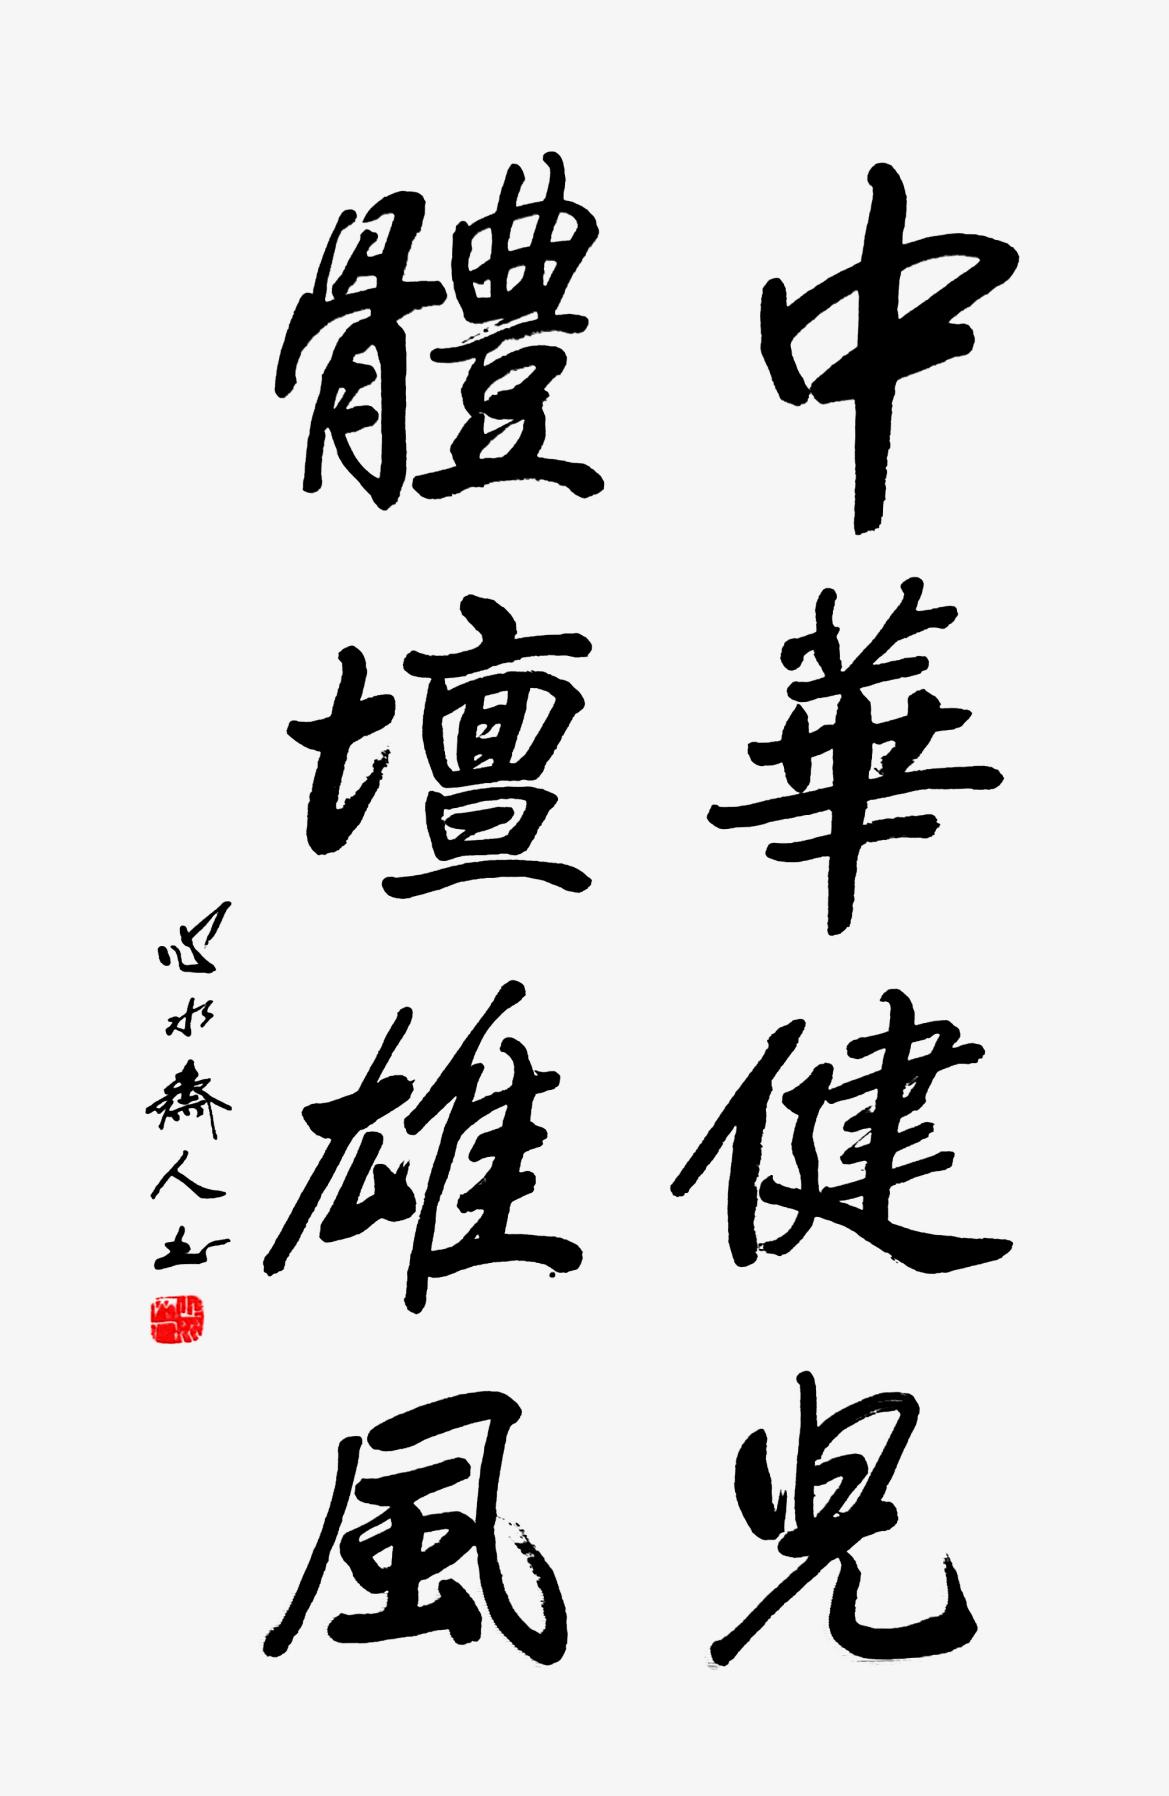 中華健兒
體壇雄風
心水齋人书